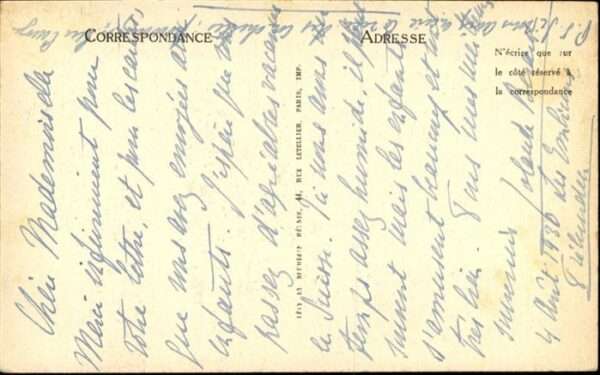 CORRESPONDANCE
ADRESSE
N'écrire que sur
le côté réservé à
la correspondance
LÉVY ET NEURDEIN RÉUNIS, 44, RUE LETELLIER, PARIS, IMP.
Chère Mademoiselle
Merci infiniment pour
votre lettre, et pour les cartes
que vous avez envoyées aux
enfants. J'espère que vous
passez d'agréables vacances
en Suisse. Ici nous avons un
temps assez humide, il pleut
souvent mais les enfants
s'amusent beaucoup et vont
très bien. Tous mes meilleurs
souvenirs
4 Août 1930
P.S. Si vous